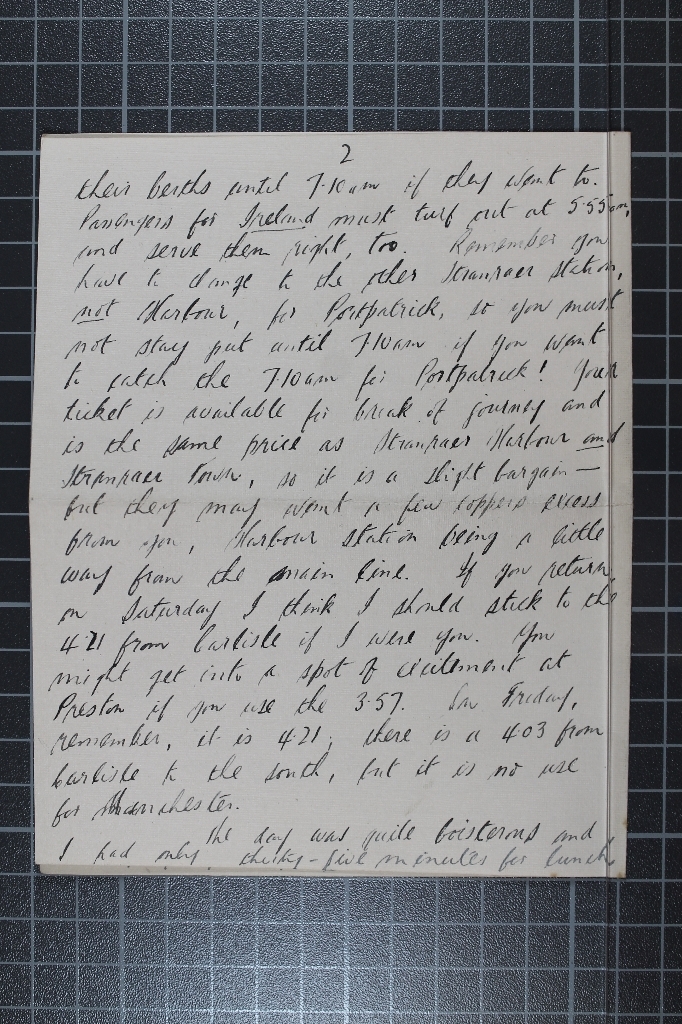 2
their berths until 7.10am if they want to.
Passengers for Ireland must turf out at 5.55am,
and serve them right, too. Remember you
have to change to the other Stranraer station,
not Harbour, for Portpatrick, so you must
not stay put until 7.10am if you want
to catch the 7.10am for Portpatrick! Your
ticket is available for break of journey and
is the same price as Stranraer Harbour and
Stranraer Town, so it is a slight bargain —
but they may want a few coppers excess
from you, Harbour station being a little
way from the main line. If you return
on Saturday I think I should stick to the
4.21 from Carlisle if I were you. You
might get into a spot of excitement at
Preston if you use the 3.57. On Friday,
remember, it is 4.21; there is a 4.03 from
Carlisle to the south, but it is no use
for Manchester.
The day was quite boisterous and
I had only thirty-five minutes for lunch